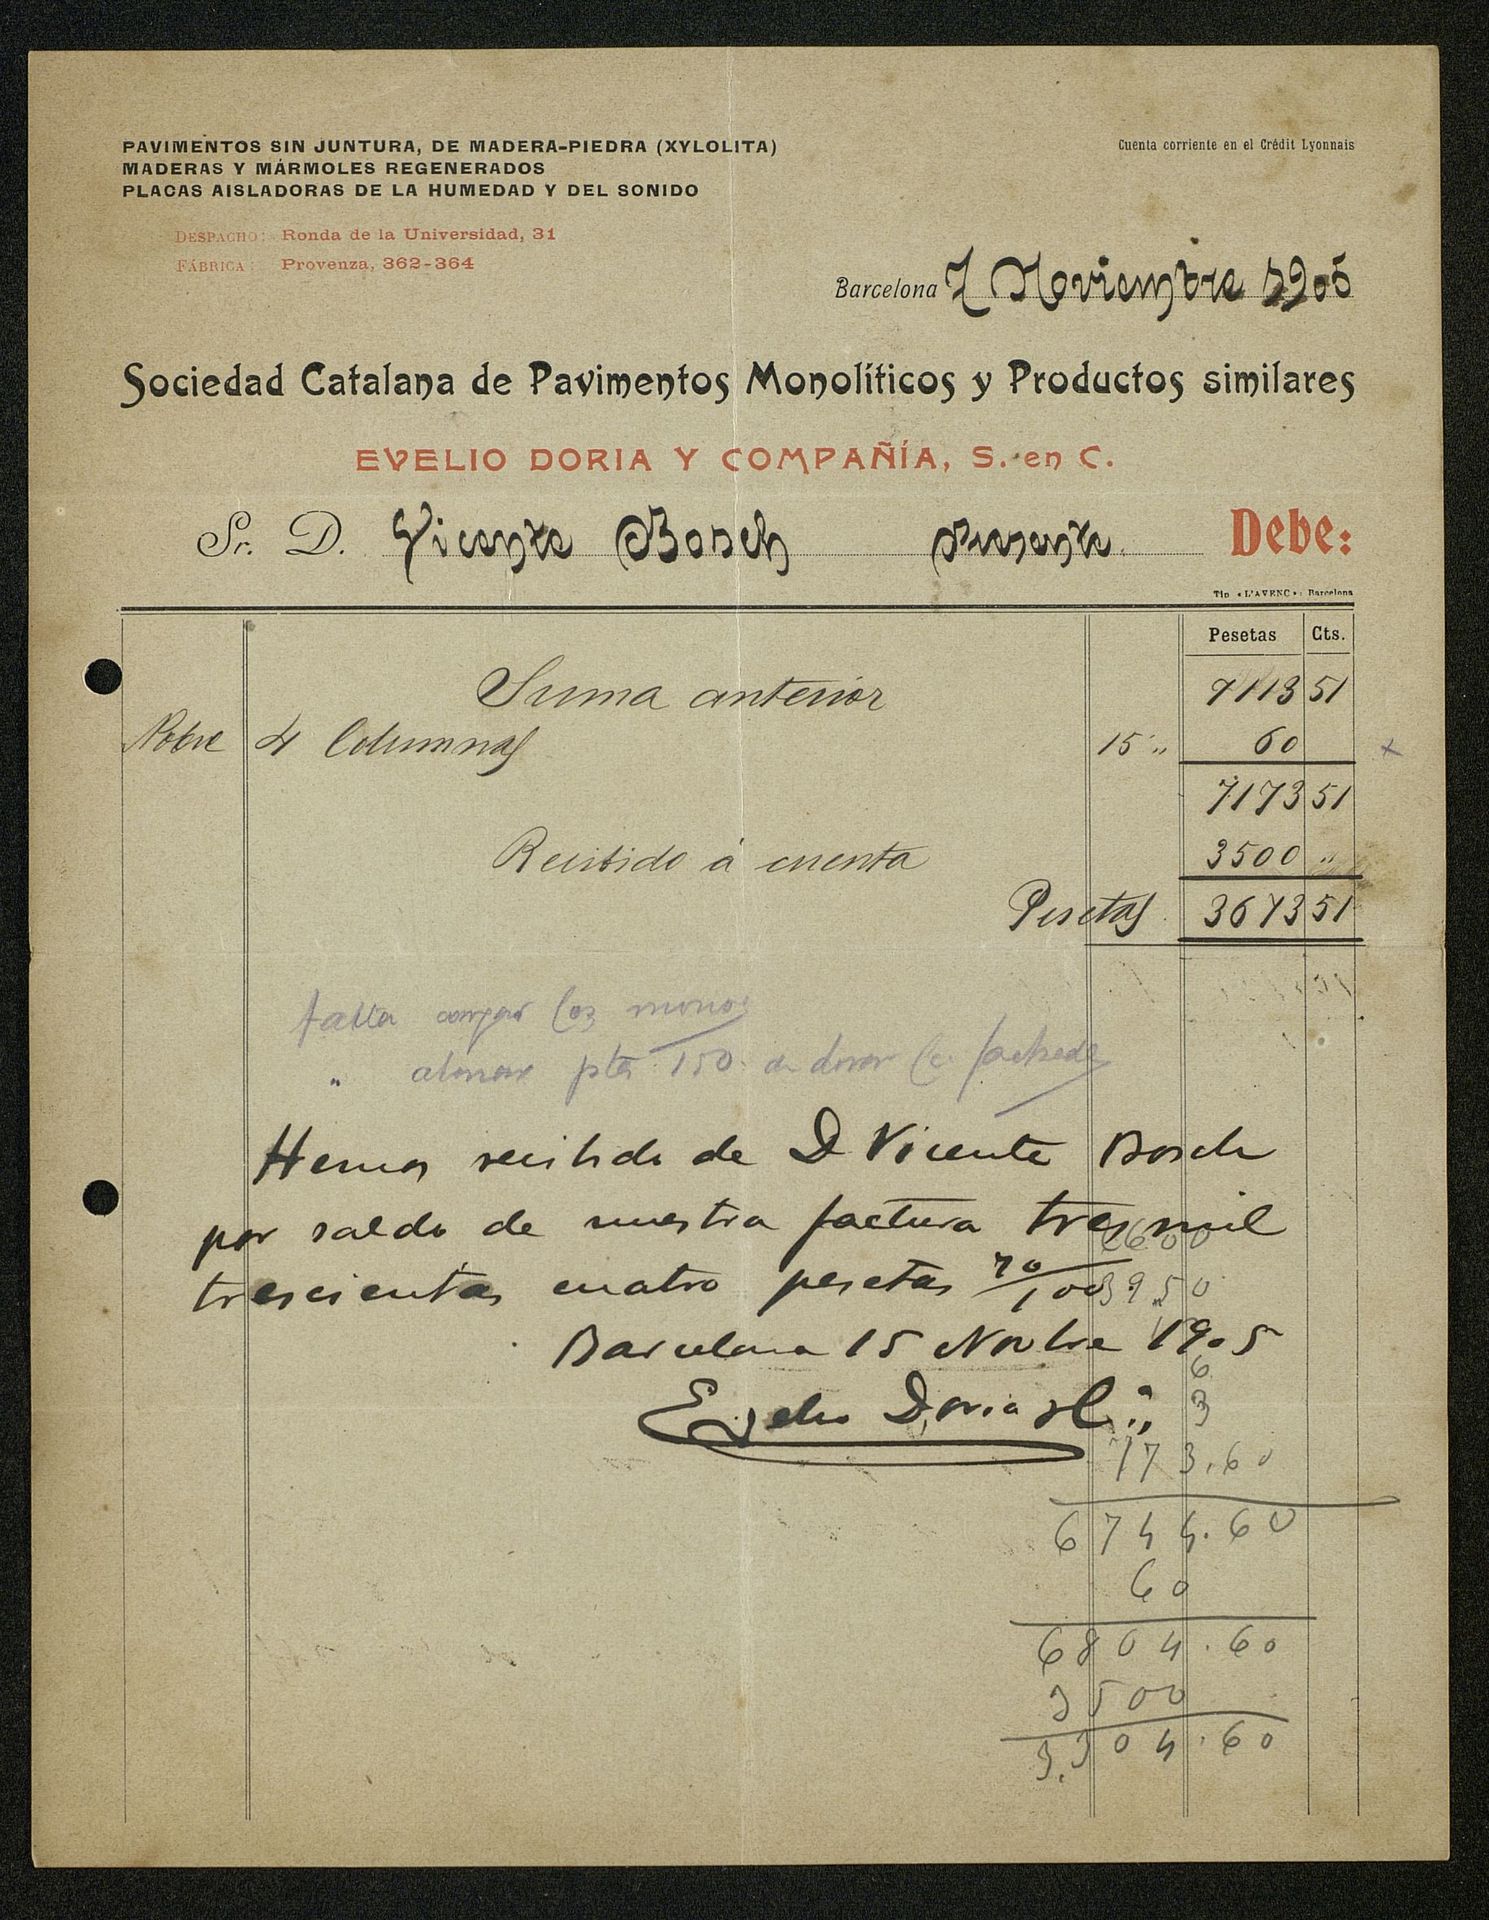 PAVIMENTOS SIN JUNTURA, DE MADERA-PIEDRA (XYLOLITA)
MADERAS Y MÁRMOLES REGENERADOS
PLACAS AISLADORAS DE LA HUMEDAD Y DEL SONIDO
Cuenta corriente en el Crédit Lyonnais
DESPACHO: Ronda de la Universidad, 31
FÁBRICA: Provenza, 362-364
Barcelona 7 Noviembre 1905
Sociedad Catalana de Pavimentos Monolíticos y Productos similares
EVELIO DORIA Y COMPAÑÍA, S. en C.
Sr. D. Vicente Bosch Presente. Debe:
Tip «L'AVENÇ»: Barcelona
Pesetas Cts.
Suma anterior 7113 51
Nobre 4 Columnas 15 " 60 x
7173 51
Recibido á cuenta 3500 "
Pesetas 3673 51
falta los monos
" abonar pts 150 de dorar la fachada
Hemos recibido de D Vicente Bosch
por saldo de nuestra factura tres mil
trescientas cuatro pesetas 70/100
Barcelona 15 Novbre 1905
Evelio Doria y Cª
3950
6
3
773.60
6744.60
60
6804.60
3500
3.304.60